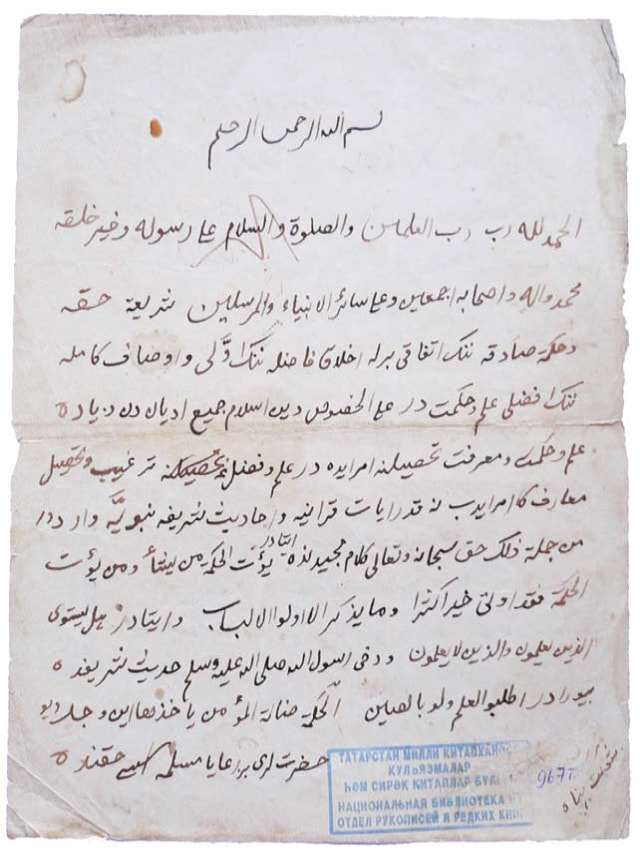 بسم الله الرحمن الرحيم
الحمد لله رب رب العلمين والصلوة والسلام على رسوله وخير خلقه
محمد واله واصحابه اجمعين وعلى سائر الانبياء والمرسلين شريعة حقه
وحكمة صادقه ننك اتفاقى برله اخلاق فاضله ننك اوّلى واوصاف كامله
ننك افضلى علم وحكمت در على الخصوص دين اسلام جميع اديان دن زياده
علم وحكمت ومعرفت تحصيلنه امر ايده در علم وفضل تحصيلنه ترغيب وتحصيل
معارف كا امر ايدب نه قدر ايات قرانيه واحاديث شريفه نبويّه وارد در
من جملة ذلك حق سبحانه وتعالى كلام مجيدنده ايتادر يؤت الحكمة من يشاء ومن يؤت
الحكمة فقد اوتى خيرا كثيرا وما يذكر الا اولوا الالباب وايتادر هل يستوى
الذين يعلمون والذين لا يعلمون ودخى رسول الله صلى الله عليه وسلم حديث شريفده
بيورادر اطلبو العلم ولو بالصين الحكمة ضالة المؤمن ياخذها اين وجد ديو
حضرت لرى بز رعايا مسلمه سى حقنده
ТАТАРСТАН МИЛЛИ КИТАПХАН
КУЛЪЯЗМАЛАР
ҺӘМ СИРӘК КИТАПЛАР БҮЛ
НАЦИОНАЛЬНАЯ БИБЛИОТЕКА
ОТДЕЛ РУКОПИСЕЙ И РЕДКИХ КНИ
967т